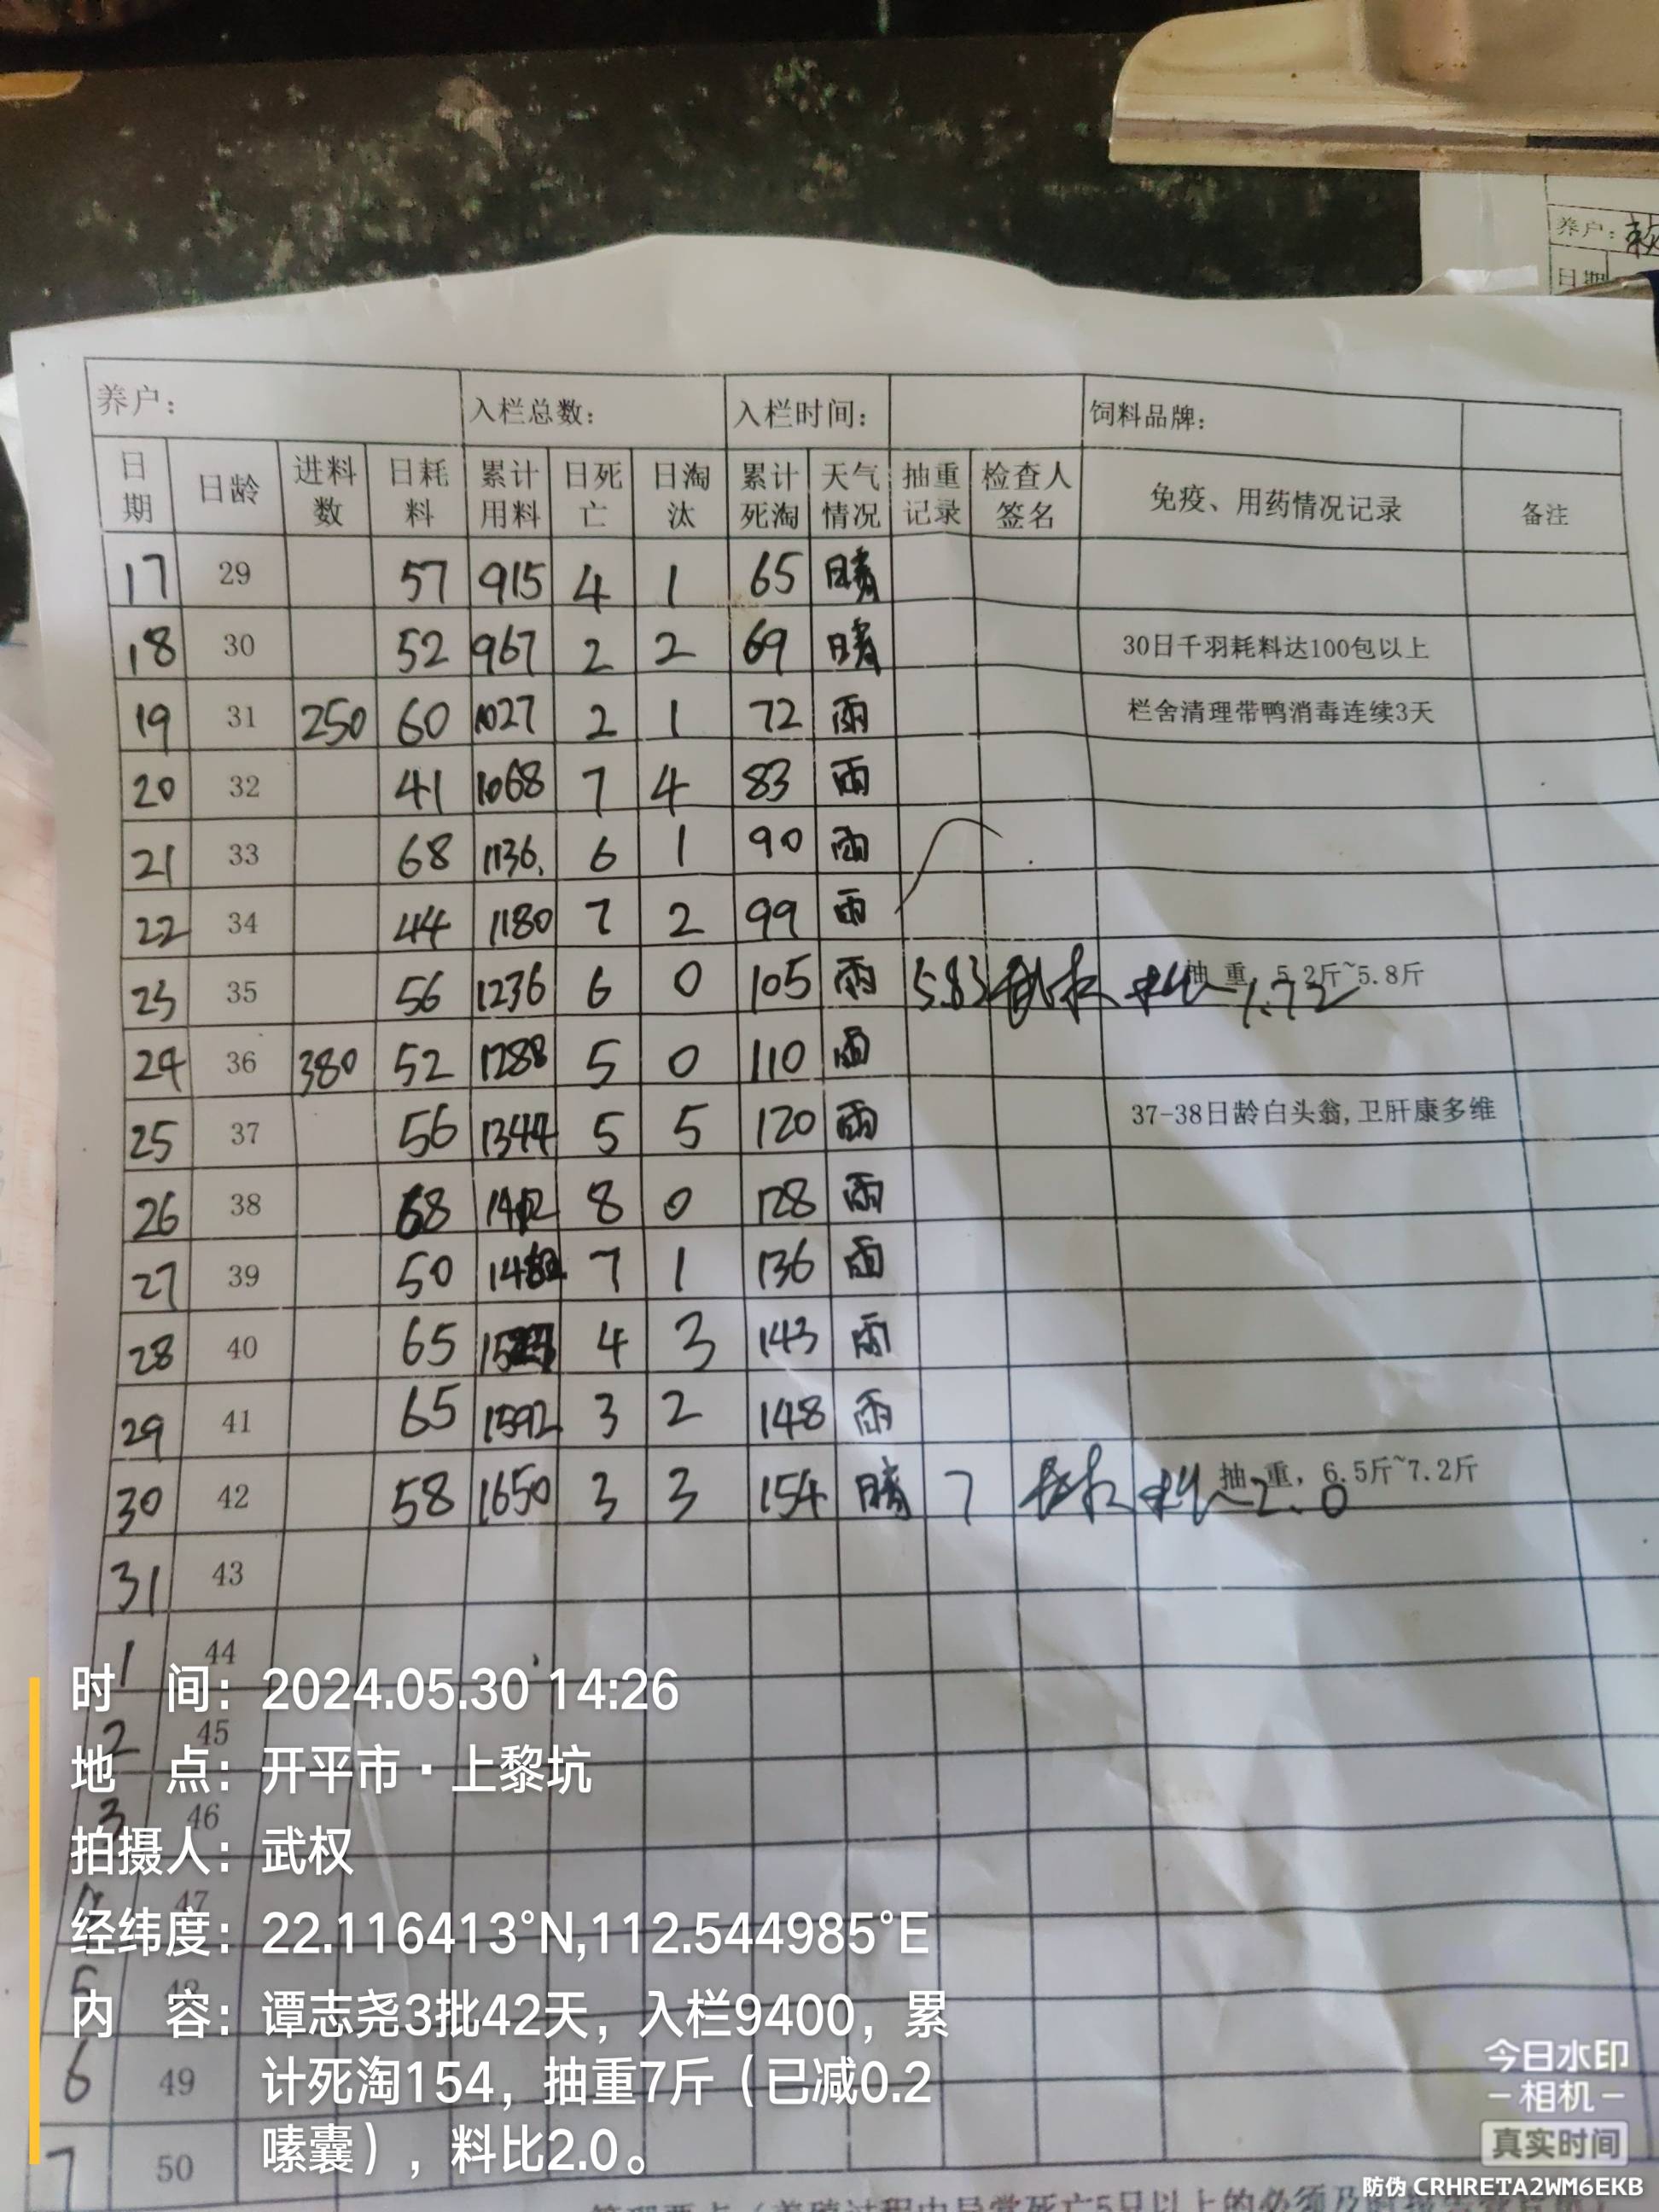 养户：
日期
养户： 入栏总数： 入栏时间： 饲料品牌：
日期 日龄 进料数 日耗料 累计用料 日死亡 日淘汰 累计死淘 天气情况 抽重记录 检查人签名 免疫、用药情况记录 备注
17 29 57 915 4 1 65 晴
18 30 52 967 2 2 69 晴 30日千羽耗料达100包以上
19 31 250 60 1027 2 1 72 雨 栏舍清理带鸭消毒连续3天
20 32 41 1068 7 4 83 雨
21 33 68 1136. 6 1 90 雨
22 34 44 1180 7 2 99 雨
23 35 56 1236 6 0 105 雨 5.83 武权 料比1.72 抽重，5.2斤~5.8斤
24 36 380 52 1288 5 0 110 雨
25 37 56 1344 5 5 120 雨 37-38日龄白头翁,卫肝康多维
26 38 68 1412 8 0 128 雨
27 39 50 1462 7 1 136 雨
28 40 65 4 3 143 雨
29 41 65 1592 3 2 148 雨
30 42 58 1650 3 3 154 晴 7 武权 料比2.0 抽重，6.5斤~7.2斤
31 43
1 44
2 45
3 46
47
5 48
6 49
7 50
时 间：2024.05.30 14:26
地 点：开平市·上黎坑
拍摄人：武权
经纬度：22.116413°N,112.544985°E
内 容：谭志尧3批42天，入栏9400，累
计死淘154，抽重7斤（已减0.2
嗉囊），料比2.0。
今日水印
-相机-
真实时间
防伪 CRHRETA2WM6EKB